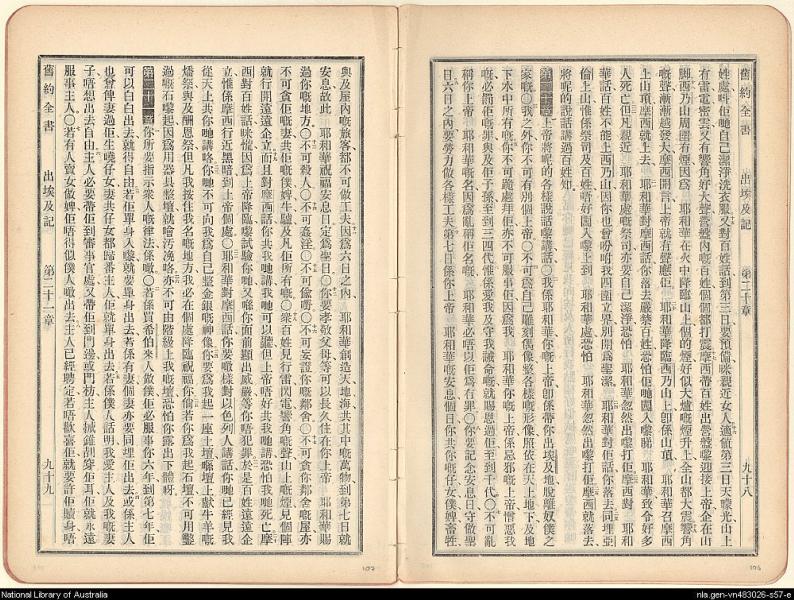 舊約全書 出埃及記 第二十章 九十八
姓處呌佢哋自己潔淨洗衣服又對百姓話到第三日要預備咪親近女人適値第三日天曚光山上
有雷電密雲又有響角好大聲營盤內嘅百姓個個都打震摩西帶百姓出營盤嚟迎接上帝企在山
脚西乃山周圍有煙因爲 耶和華在火中降臨山上個的煙好似大爐嘅煙升上全山都大震響角
嘅聲漸漸越發大摩西開言上帝就有聲應佢 耶和華降臨西乃山上卽係山頂 耶和華召摩西
上山頂摩西就上去 耶和華對摩西話你落去嚴禁百姓恐怕佢哋闖入嚟睇 耶和華致令好多
人死亡但凡親近 耶和華處嘅祭司亦要自己潔淨恐怕 耶和華忽然出嚟打佢摩西對 耶和
華話百姓不能上西乃山因你也曾吩咐我四圍立界別開爲聖潔 耶和華對佢話你落去同埋亞
倫上山惟係祭司及百姓唔好闖入嚟上到 耶和華處恐怕 耶和華忽然出嚟打佢摩西就落去
將呢的說話講過百姓知
第二十章 上帝將呢的各樣說話嚟講話○我係耶和華你嘅上帝卽係帶你出埃及地脫離奴僕之
家嘅○我之外你不可有別個上帝○不可爲自己雕刻偶像整各樣嘅形像照依在天上地下及地
下水中所有嘅你不可跪處拜佢亦不可服事佢因爲我 耶和華你嘅上帝係忌邪嘅上帝憎惡我
嘅必罰佢嘅罪與及佢子孫至到三四代惟係愛我及守我誡命嘅就賜恩過佢至到千代○不可亂
稱你上帝 耶和華嘅名因爲亂稱佢名嘅 耶和華必唔以佢爲有罪○你要記念安息日守做聖
日六日之內要勞力做各樣工夫第七日係你上帝 耶和華嘅安息個日你共你嘅仔女僕婢牲
與及屋內嘅旅客都不可做工夫因爲六日之內 耶和華創造天地海共其中嘅萬物到第七日就
安息故此 耶和華視福安息日定爲聖日○你要孝敬父母等可以長久住在你上帝 耶和華賜
過你嘅地方○不可殺人○不可姦淫○不可偷嘢○不可妄證你嘅鄰舍○不可貪你鄰舍嘅屋亦
不可貪佢嘅妻共佢嘅僕婢牛驢及凡佢所有嘅○衆百姓見行雷閃電響角嘅聲山上嘅煙見個陣
就行開遠遠企立而且對摩西話你共我哋講我哋可以聽但上帝唔好共我哋講恐怕我哋死亡摩
西對百姓話咪慌因爲上帝降臨嚟試驗你哋又喺你面前顯出威嚴等你唔犯罪於是百姓遠遠企
立惟係摩西行近黑暗到上帝個處○耶和華對摩西話你要噉樣對以色列人講話你哋已經見我
從天上共你哋講咯你哋不可向我爲自己整金銀嘅神像你要爲我起一座土壇喺壇上獻牛羊嘅
燔祭與及酬恩祭但凡我按住我名嘅地方我必在個處降臨祝福你倘若你爲我起石壇不可用鑿
過嘅石嚟起因爲用器具整壇就噲汚洩咯亦不可由階級上我嘅壇恐怕你露出下體呀
第二十一章 你所要指示衆人嘅律法係噉○若係買希伯來人做僕佢必服事你六年到第七年佢
可以白白出去就得自由若佢單身入嚟就要單身出去若係有妻個妻亦要同埋佢出去或係主人
也曾俾妻過佢生嘵仔女妻共仔女都歸番主人佢就單身出去若係僕人話明我愛主人及我嘅妻
子唔想出去自由主人必要帶佢到審事官處又帶佢到門邊或門枋主人㨢錐刮穿佢耳佢就永遠
服事主人○若有人賣女做婢佢唔得似僕人噉出去主人已經聘定若唔歡喜佢就要許佢贖身唔
舊約全書 出埃及記 第二十一章 九十九
National Library of Australia
nla.gen-vn483026-s57-e